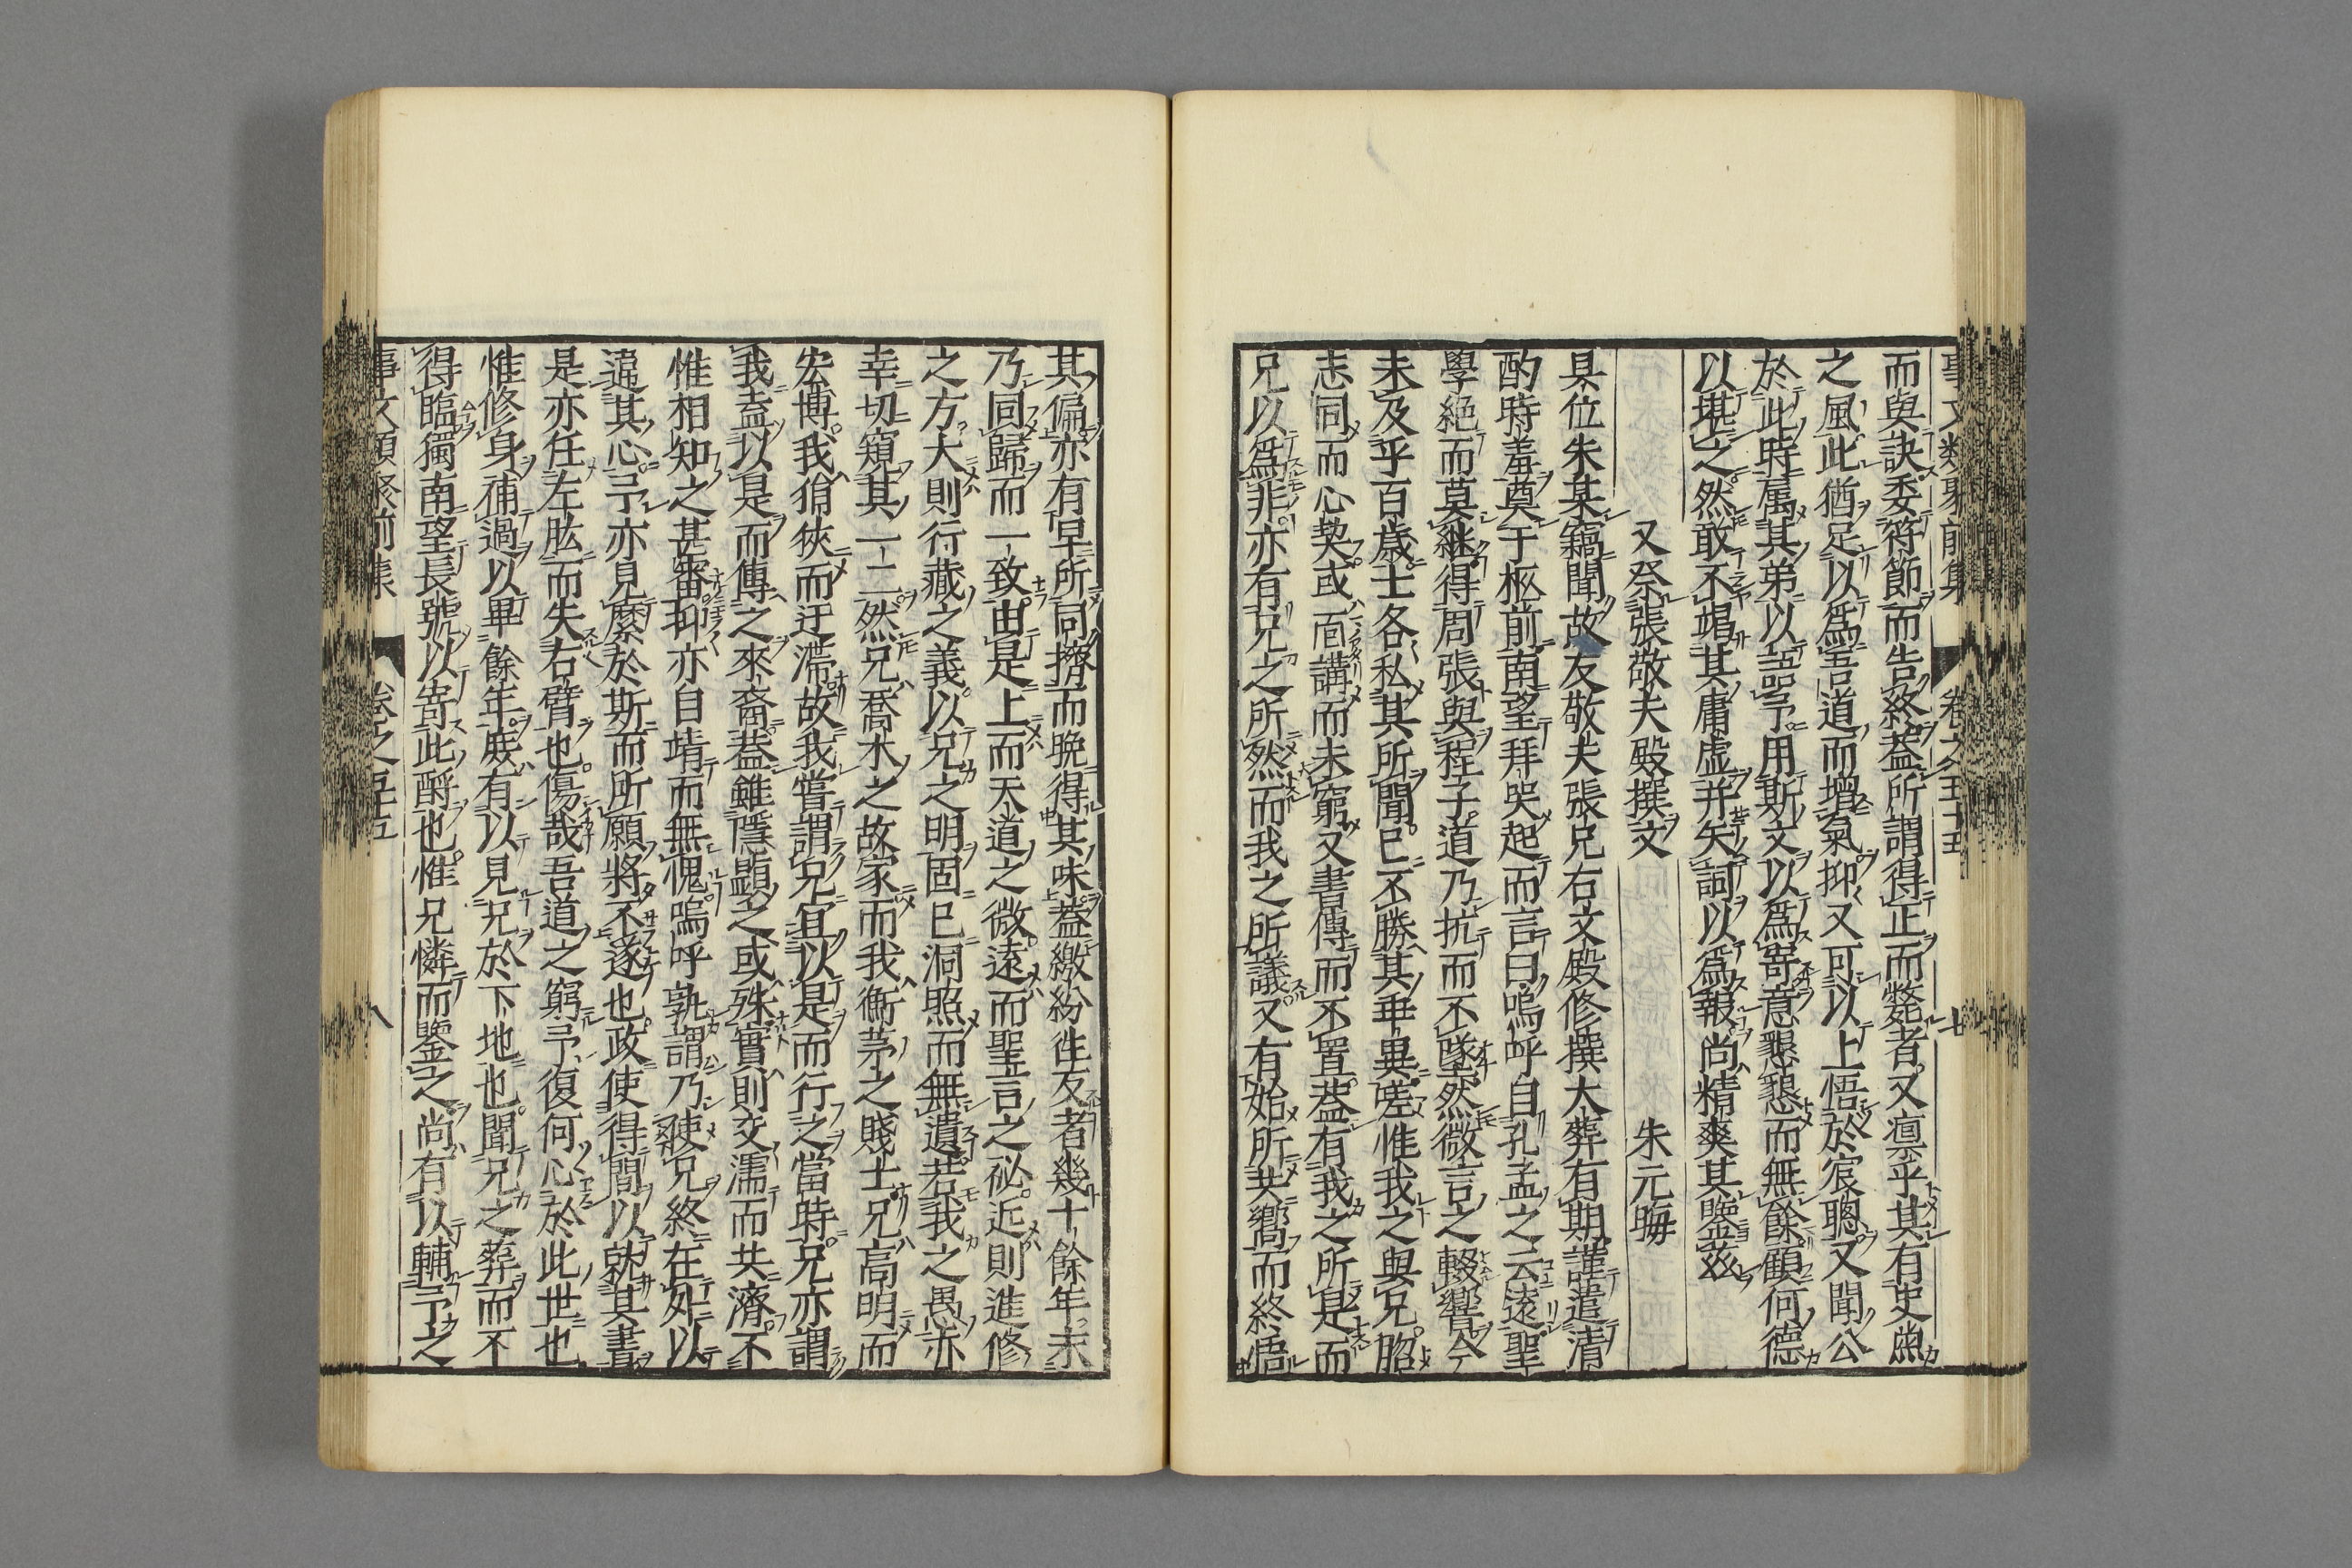 事文類聚前集 卷之五十五 七
而與訣委符節而告終蓋所謂得正而斃者又凛乎其有史魚
之風此猶足以爲吾道而增氣抑又可以上悟於宸聰又聞公
於此時屬其弟以語予用斯文以爲寄意懇懇而無餘顧何德
以堪之然敢不竭其庸虚并矢詞以爲報尚精爽其鑒茲
又祭張敬夫殿撰文 朱元晦
具位朱某竊聞故友敬夫張兄右文殿修撰大葬有期謹遣清
酌時羞奠于柩前南望拜哭起而言曰嗚呼自孔孟之云遠聖
學絶而莫繼得周張與程子道乃抗而不墜然微言之輟響今
未及乎百歲士各私其所聞已不勝其乖異嗟惟我之與兄脗
志同而心契或面講而未窮又書傳而不置蓋有我之所是而
兄以爲非亦有兄之所然而我之所議又有始所共嚮而終悟
其偏亦有早所同擠而晚得其味蓋繳紛徃反者幾十餘年末
乃同歸而一致由是上而天道之微遠而聖言之秘近則進修
之方大則行藏之義以兄之明固已洞照而無遺若我之愚亦
幸切窺其一二然兄喬木之故家而我衡茅之賤士兄高明而
宏博我狷狹而迂滯故我嘗謂兄宜以是而行之當時兄亦謂
我盍以是而傳之來裔蓋雖隱顯之或殊實則交濡而共濟不
惟相知之甚審抑亦自靖而無愧嗚呼孰謂乃使兄終在外以
違其心予亦見縻於斯而所願將不遂也政使得間以就其書
是亦任左肱而失右臂也傷哉吾道之窮予復何心於此世也
惟修身補過以畢餘年庶有以見兄於下地也聞兄之葬而不
得臨獨南望長號以寄此酹也惟兄憐而鑒之尚有以輔予之
事文類聚前集 卷之五十五 八